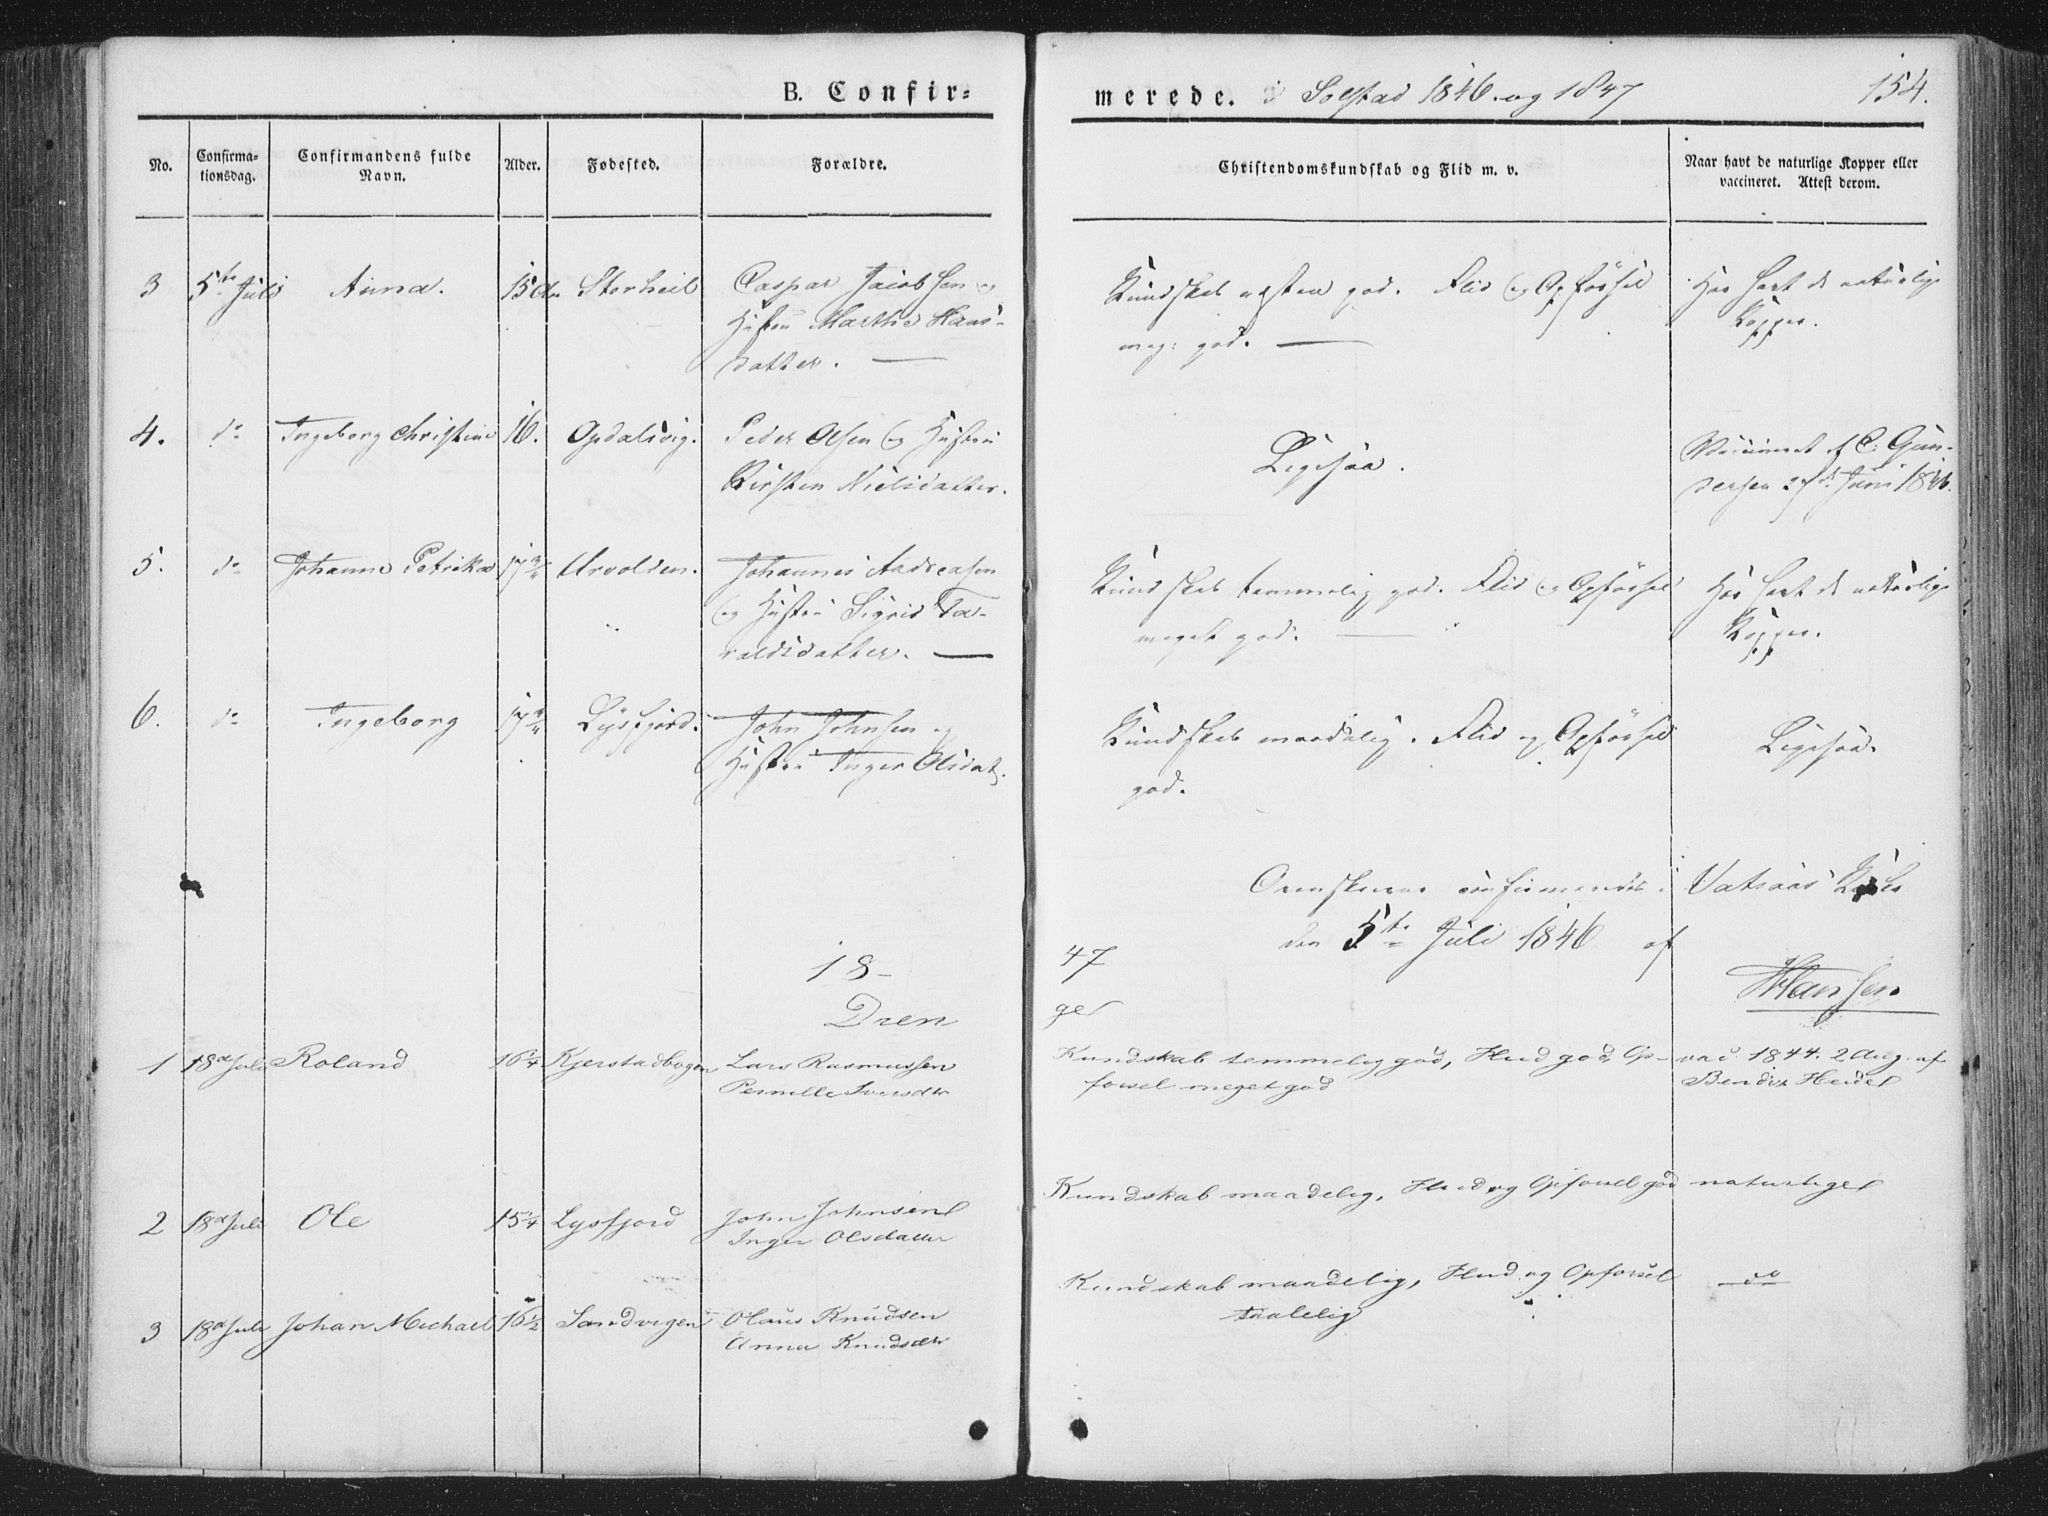 B. Confir-
merede. i Solstad 1846. og 1847
154.
No.
Confirma-
tionsdag.
Confirmandens fulde
Navn.
Alder.
Fødested.
Forældre.
Christendomskundskab og Flid m. v.
Naar havt de naturlige Kopper eller
vaccineret. Attest derom.
3 5te Juli Anna. 15 Storheil Caspar Jacobsen og
Hustru Marthe Hans-
datter. —
Kundskab næsten god. Flid og Opførsel
meg: god. —
Har havt de naturlige
Kopper.
4. do Ingeborg Christine 16. Opdalsvig. Peder Olsen og Hustru
Kirsten Nielsdatter.
Ligesaa.
Vaccineret af C. Gun-
dersen 27de Juni 1846.
5. do Johanne Petrika 17 3/4 Urvolden. Johannes Andreasen
og Hustru Sigrid Ta-
raldsdatter. —
Kundskab temmelig god. Flid og Opførsel
meget god. —
Har havt de naturlige
Kopper.
6. do Ingeborg 17 3/4 Lysfjord. John Johnsen og
Hustru Inger Olsdat.
Kundskab maadelig. Flid og Opførsel
god.
Ligesaa.
Ovenskrevne confirmerede i Vatsaas Kirke
den 5te Juli 1846 af
Hansen
18-47
Dren ger
1 18de Juli Roland 16 1/4 Kjerstadbogen Lars Rasmussen
Pernille Iversdtr
Kundskab temmelig god, Flid god Op-
førsel meget god
vac. 1844. 2 Aug. af
Bendix Heidel
2 18de Juli Ole 15 1/4 Lysfjord John Johnsen
Inger Olsdatter
Kundskab maadelig, Flid og Opførsel god
naturliget
3 18de Juli Johan Michael 16 1/2 Sandvigen Olaus Knudsen
Anna Knudsdtr
Kundskab maadelig, Flid og Opførsel
taalelig
do